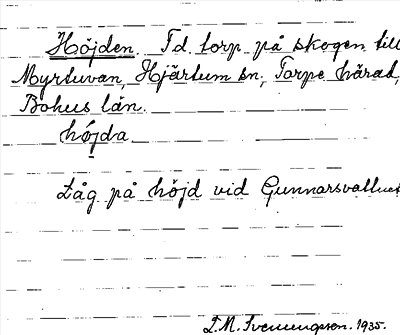 Höjden. Td. torp på skogen till
Myrtuvan, Hjärtum sn, Torpe härad,
Bohus län.
höjda
Låg på höjd vid Gunnarsvallues
T.M. Svenungsson. 1935.